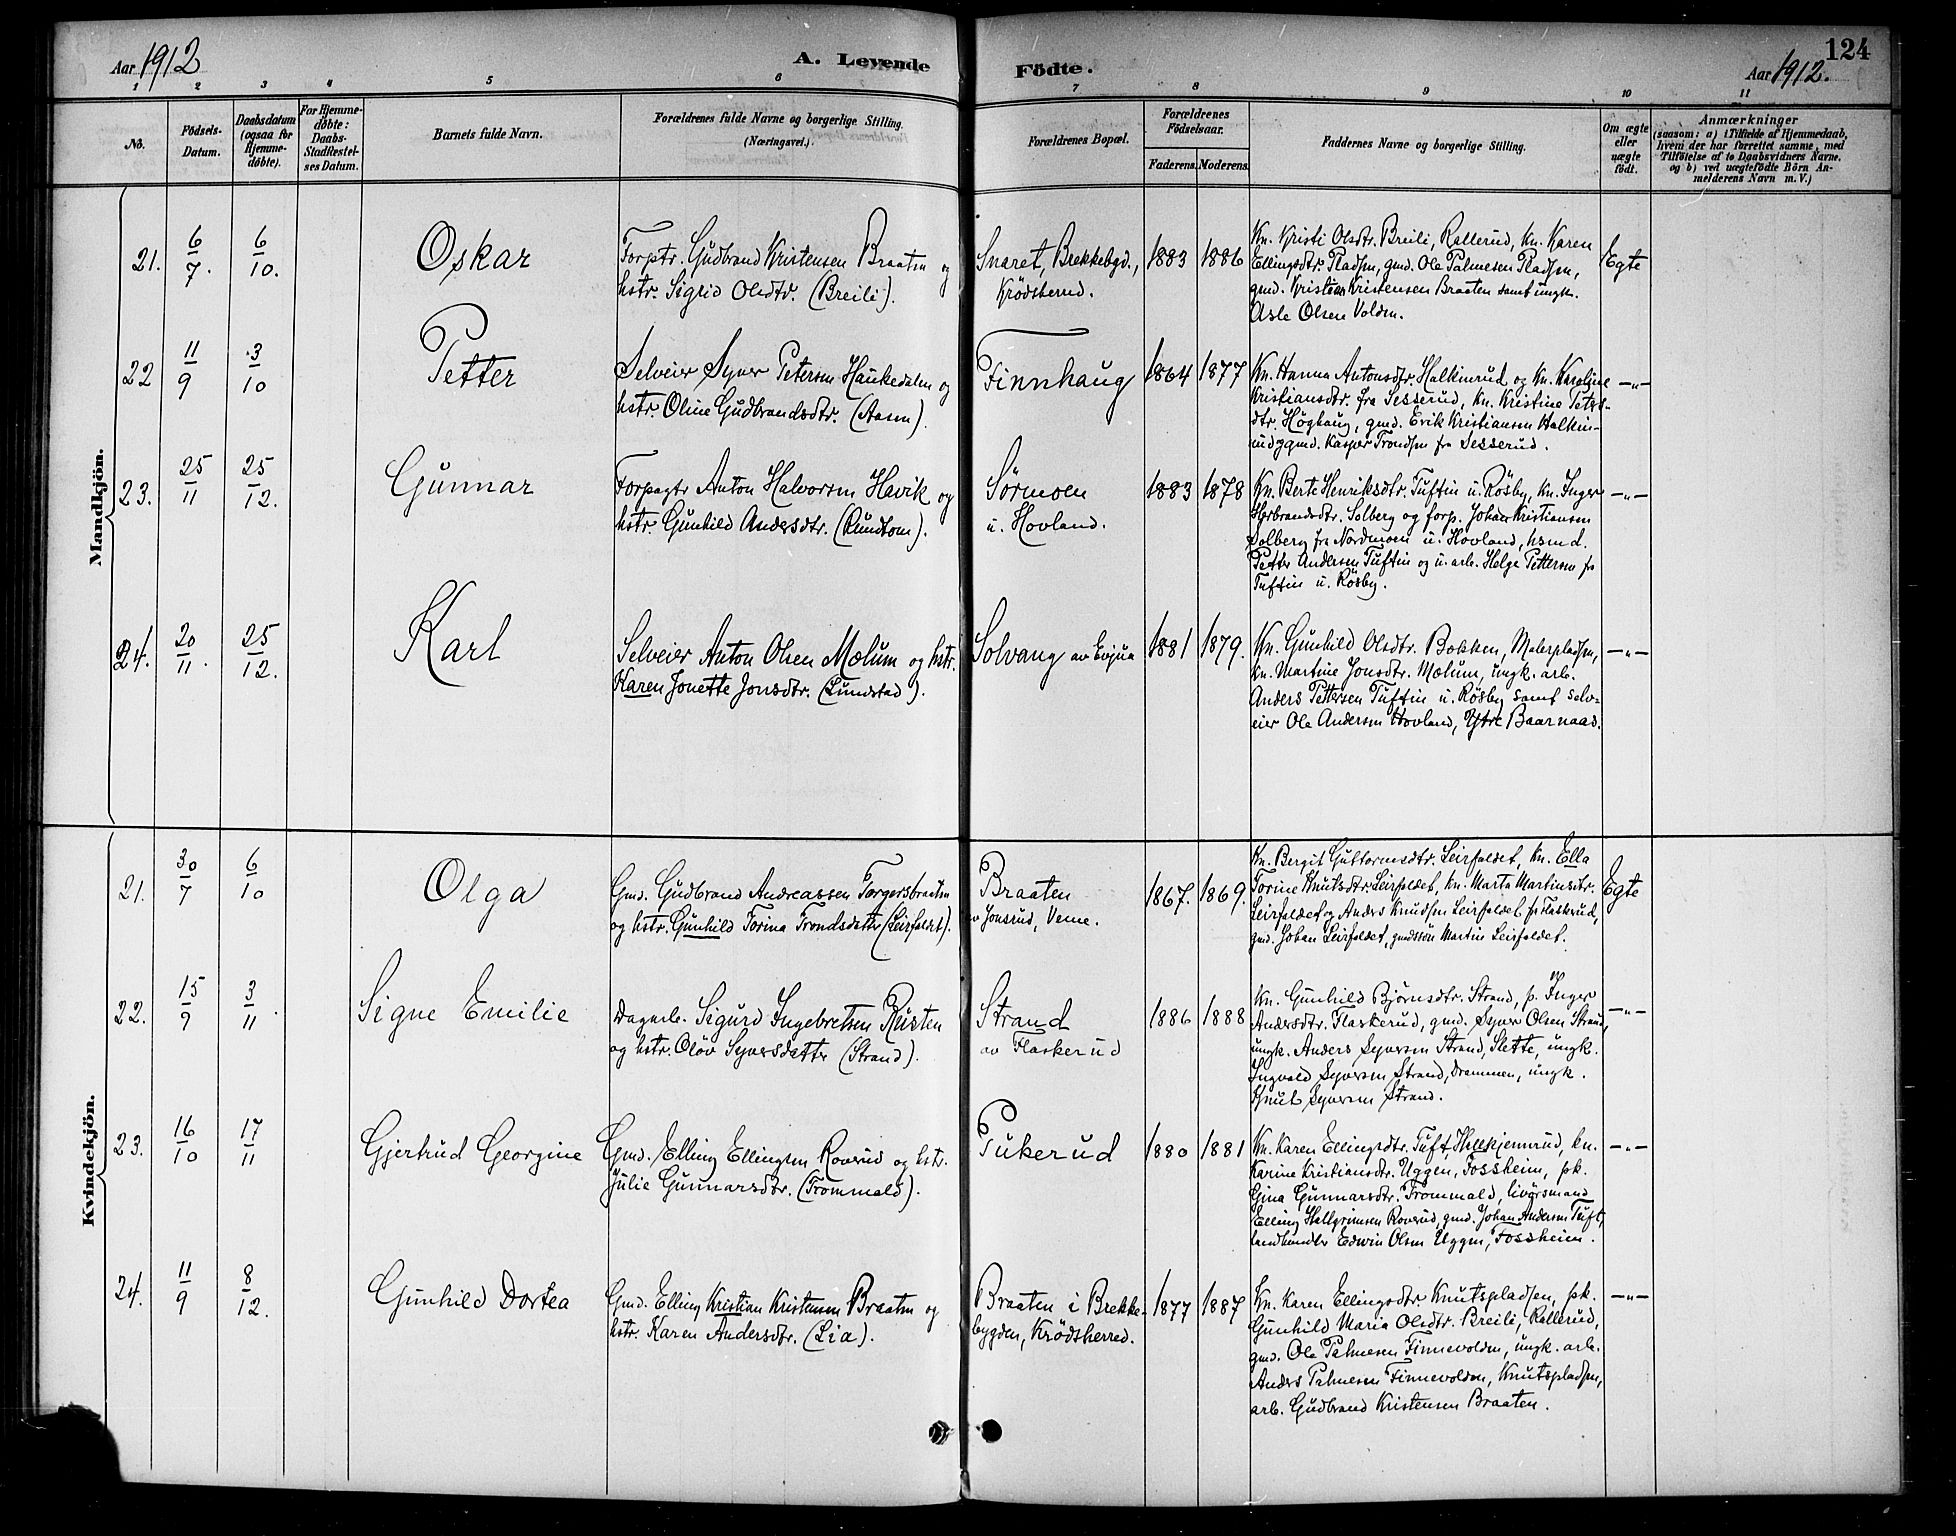 Aar 1912
A. Levende
Födte.
Aar 1912.
124
1 2 3 4 5 6 7 8 9 10 11
No.
Födsels-
Datum.
Daabsdatum
(ogsaa for
Hjemme-
døbte).
For Hjemme-
døbte:
Daabs-
Stadfæstel-
ses Datum.
Barnets fulde Navn.
Forældrenes fulde Navne og borgerlige Stilling.
(Næringsvei.)
Forældrenes Bopæl.
Forældrenes
Födselsaar.
Faderens. Moderens.
Faddernes Navne og borgerlige Stilling.
Om ægte
eller
uægte
födt.
Anmærkninger
(saasom: a) i Tilfælde af Hjemmedaab,
hvem der har forrettet samme, med
Tilföielse af to Daabsvidners Navne,
og b) ved uægtefödte Börn An-
melderens Navn m. V.)
Mandkjön.
21.
6/7.
6/10.
Oskar
Forptr. Gudbrand Kristensen Braaten og
hstr. Sigrid Olsdtr. (Breili).
Snaret, Brekkebygd.,
Krödsherred.
1883
1886
Kn. Kristi Olsdtr. Breili, Rallerud, kn. Karen
Ellingsdtr. Pladsen, gmd. Ole Palmesen Pladsen,
gmd. Kristen Kristensen Braaten samt ungk.
Asle Olsen Volden.
Egte
22
11/9
3/10
Petter
Selveier Syver Petersen Haukedalen og
hstr. Oline Gudbrandsdtr. (Aasen).
Finnhaug
1864
1877
Kn. Hanna Antonsdtr. Halkinrud og kn. Karoline
Kristiansdtr. fra Sesserud, kn. Kristine Peters-
dtr. Höghaug, gmd. Erik Kristiansen Halkin-
rud og gmd. Kasper Trondsen fra Sesserud.
—"—
23.
25/11
25/12.
Gunnar
Forpagtr Anton Halvorsen Havik og
hstr. Gunhild Andersdtr. (Rundtom).
Sørmoen
u. Hovland.
1883
1878
Kn. Berte Henriksdtr. Tuftin u. Rösby, kn. Inger
Herbrandsdtr. Solberg og forp. Johan Kristiansen
Solberg fra Nordmoen u. Hovland, hsmd.
Petter Andersen Tuftin og u. arb. Helge Pettersen fr
Tuftin u. Rösby.
—"—
24.
20/11.
25/12.
Karl
Selveier Anton Olsen Mælum og hstr.
Karen Jonette Jonsdtr. (Lundstad).
Solvang av Evjua
1881
1879.
Kn. Gunhild Olsdtr. Bakken, Malerpladsen,
kn. Martine Jonsdtr. Mælum, ungk. arb.
Anders Pettersen Tuftin u. Rösby samt selv-
eier Ole Andersen Hovland, Ytre Baarnaas.
—"—
Kvindekjön.
21.
30/7
6/10
Olga
Gmd. Gudbrand Andreassen Torgersbraaten
og hstr. Gunhild Torina Trondsdatter (Leirfaldet).
Braaten
av Jonsrud, Veme.
1867.
1869.
Kn. Bergit Guttormsdtr. Leirfaldet, kn. Ella
Torine Knutsdtr. Leirfaldet, kn. Marta Martinsdtr.
Leirfaldet og Anders Knudsen Leirfaldet fr Flaskerud,
gmd. Johan Leirfaldet, gmdssön Martin Leirfaldet.
Egte
22.
15/9
3/11
Signe Emilie
Dagarb. Sigurd Ingebretsen Rusten
og hstr. Olöv Syversdatter (Strand).
Strand
av Flaskerud
1886
1888
Kn. Gunhild Bjørnsdtr. Strand, p. Inger
Andersdtr. Flaskerud, gmd. Syver Olsen Strand,
ungk. Anders Syversen Strand, Slette, ungk.
Ingvald Syversen Strand, Drammen, ungk.
Knut Syversen Strand.
—"—
23.
16/10
17/11
Gjertrud Georgine
Gmd. Elling Ellingsen Roverud og hstr.
Julie Gunnarsdtr. (Frommald).
Pukerud
1880
1881
Kn. Karen Ellingsdtr. Tuft, kn.
Karine Kristiansdtr. Uggen, Fossheim, pk.
Gina Gunnarsdtr. Frommald, livörsmand
Elling Hallgrimsen Roverud, gmd. Johan Andersen Tuft,
landhandler Edwin Olsen Uggen, Fossheim.
—"—
24.
11/9
8/12.
Gunhild Dortea
Gmd. Elling Kristian Kristensen Braaten og
hstr. Karen Andersdtr. (Lia).
Braaten i Brekke-
bygden, Krödsherred.
1877
1887
Kn. Karen Ellingsdtr. Knutspladsen, pk.
Gunhild Maria Olsdtr. Breili, Rallerud,
gmd. Ole Palmesen Finnevolden, ungk. arb.
Anders Palmesen Finnevolden, Knutspladsen,
arb. Gudbrand Kristensen Braaten.
—"—